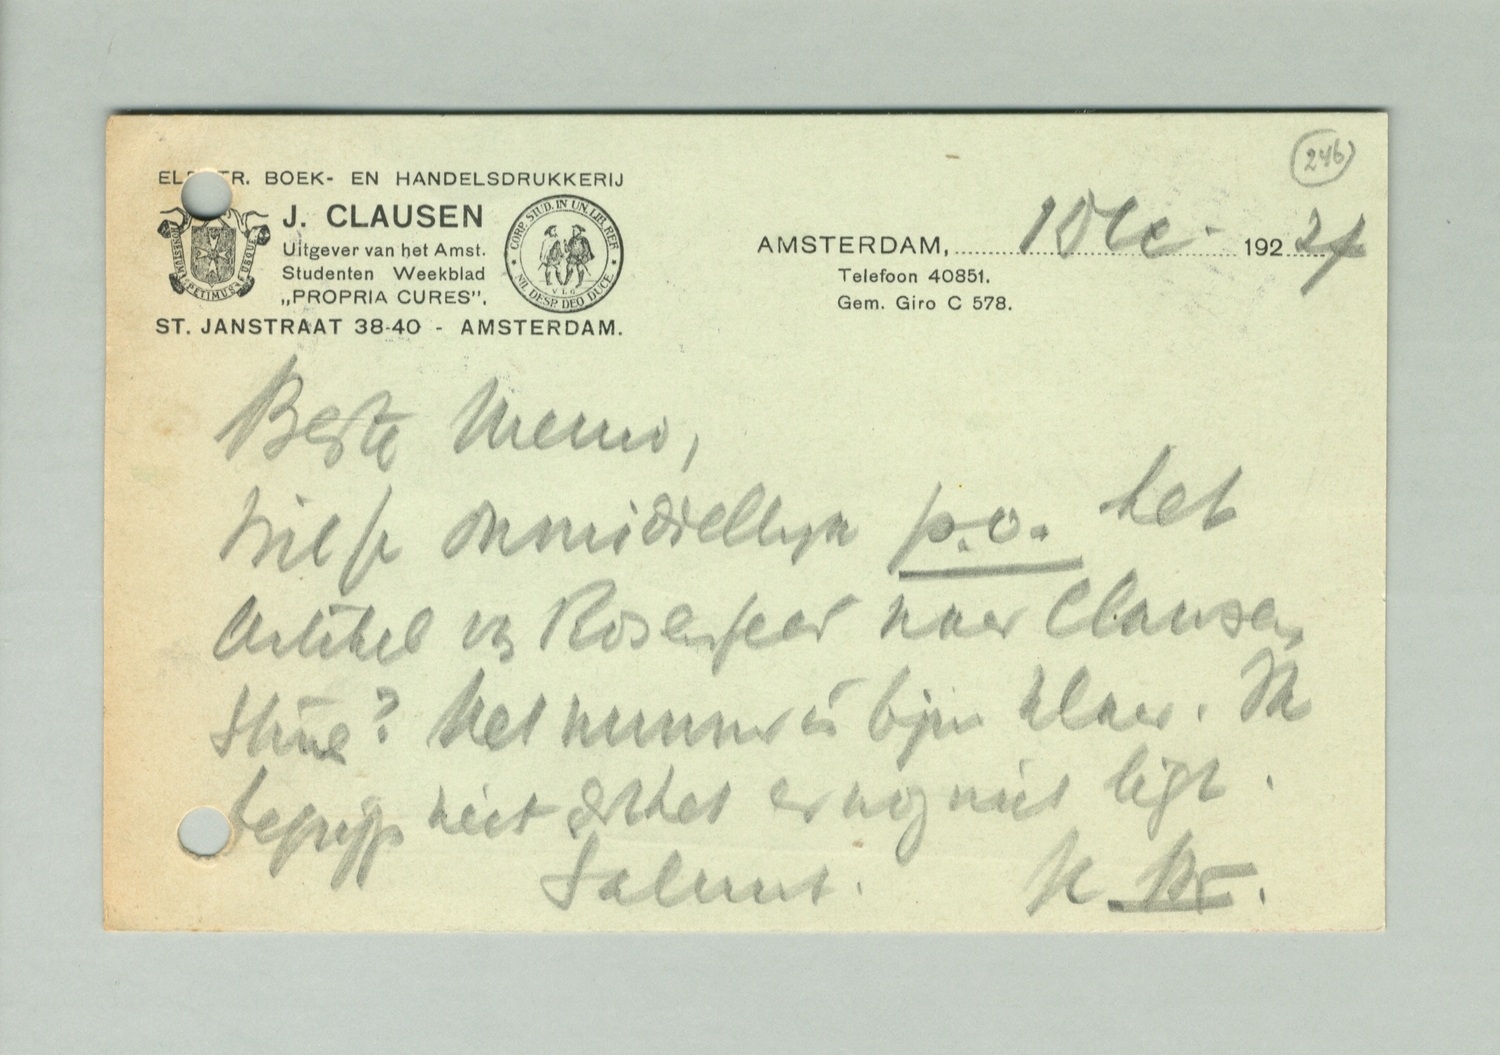 246
ELECTR. BOEK- EN HANDELSDRUKKERIJ
J. CLAUSEN
Uitgever van het Amst.
Studenten Weekblad
„PROPRIA CURES”,
ST. JANSTRAAT 38-40 - AMSTERDAM.
CORP. STUD. IN UN. LIB. REF.
NIL DESP. DEO DUCE
PETIMUS
AMSTERDAM, 1 Dec. 1924
Telefoon 40851.
Gem. Giro C 578.
Beste Menno,
Wil je onmiddellijk p.o. het
Artikel v Rosenfeld naar Clausen
? Het nummer is bijna klaar. Ik
begrijp niet dat het er nog niet ligt.
Saluut.